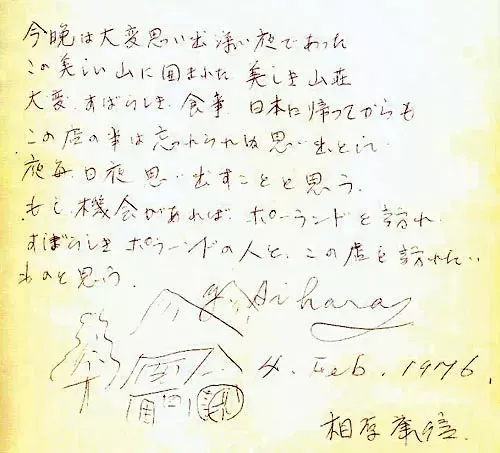 今晩は大変思い出深い夜であった
この美しい山に囲まれた 美しき山荘
大変すばらしき 食事 日本に帰ってからも
この店の事は忘れられぬ思い出として
夜毎日夜 思い出すことと思う.
もし機会があれば ポーランドを訪れ
すばらしき ポーランドの人と、この店を訪れたい
ものと思う.
Y. Aihara
4. Feb. 1976.
相原